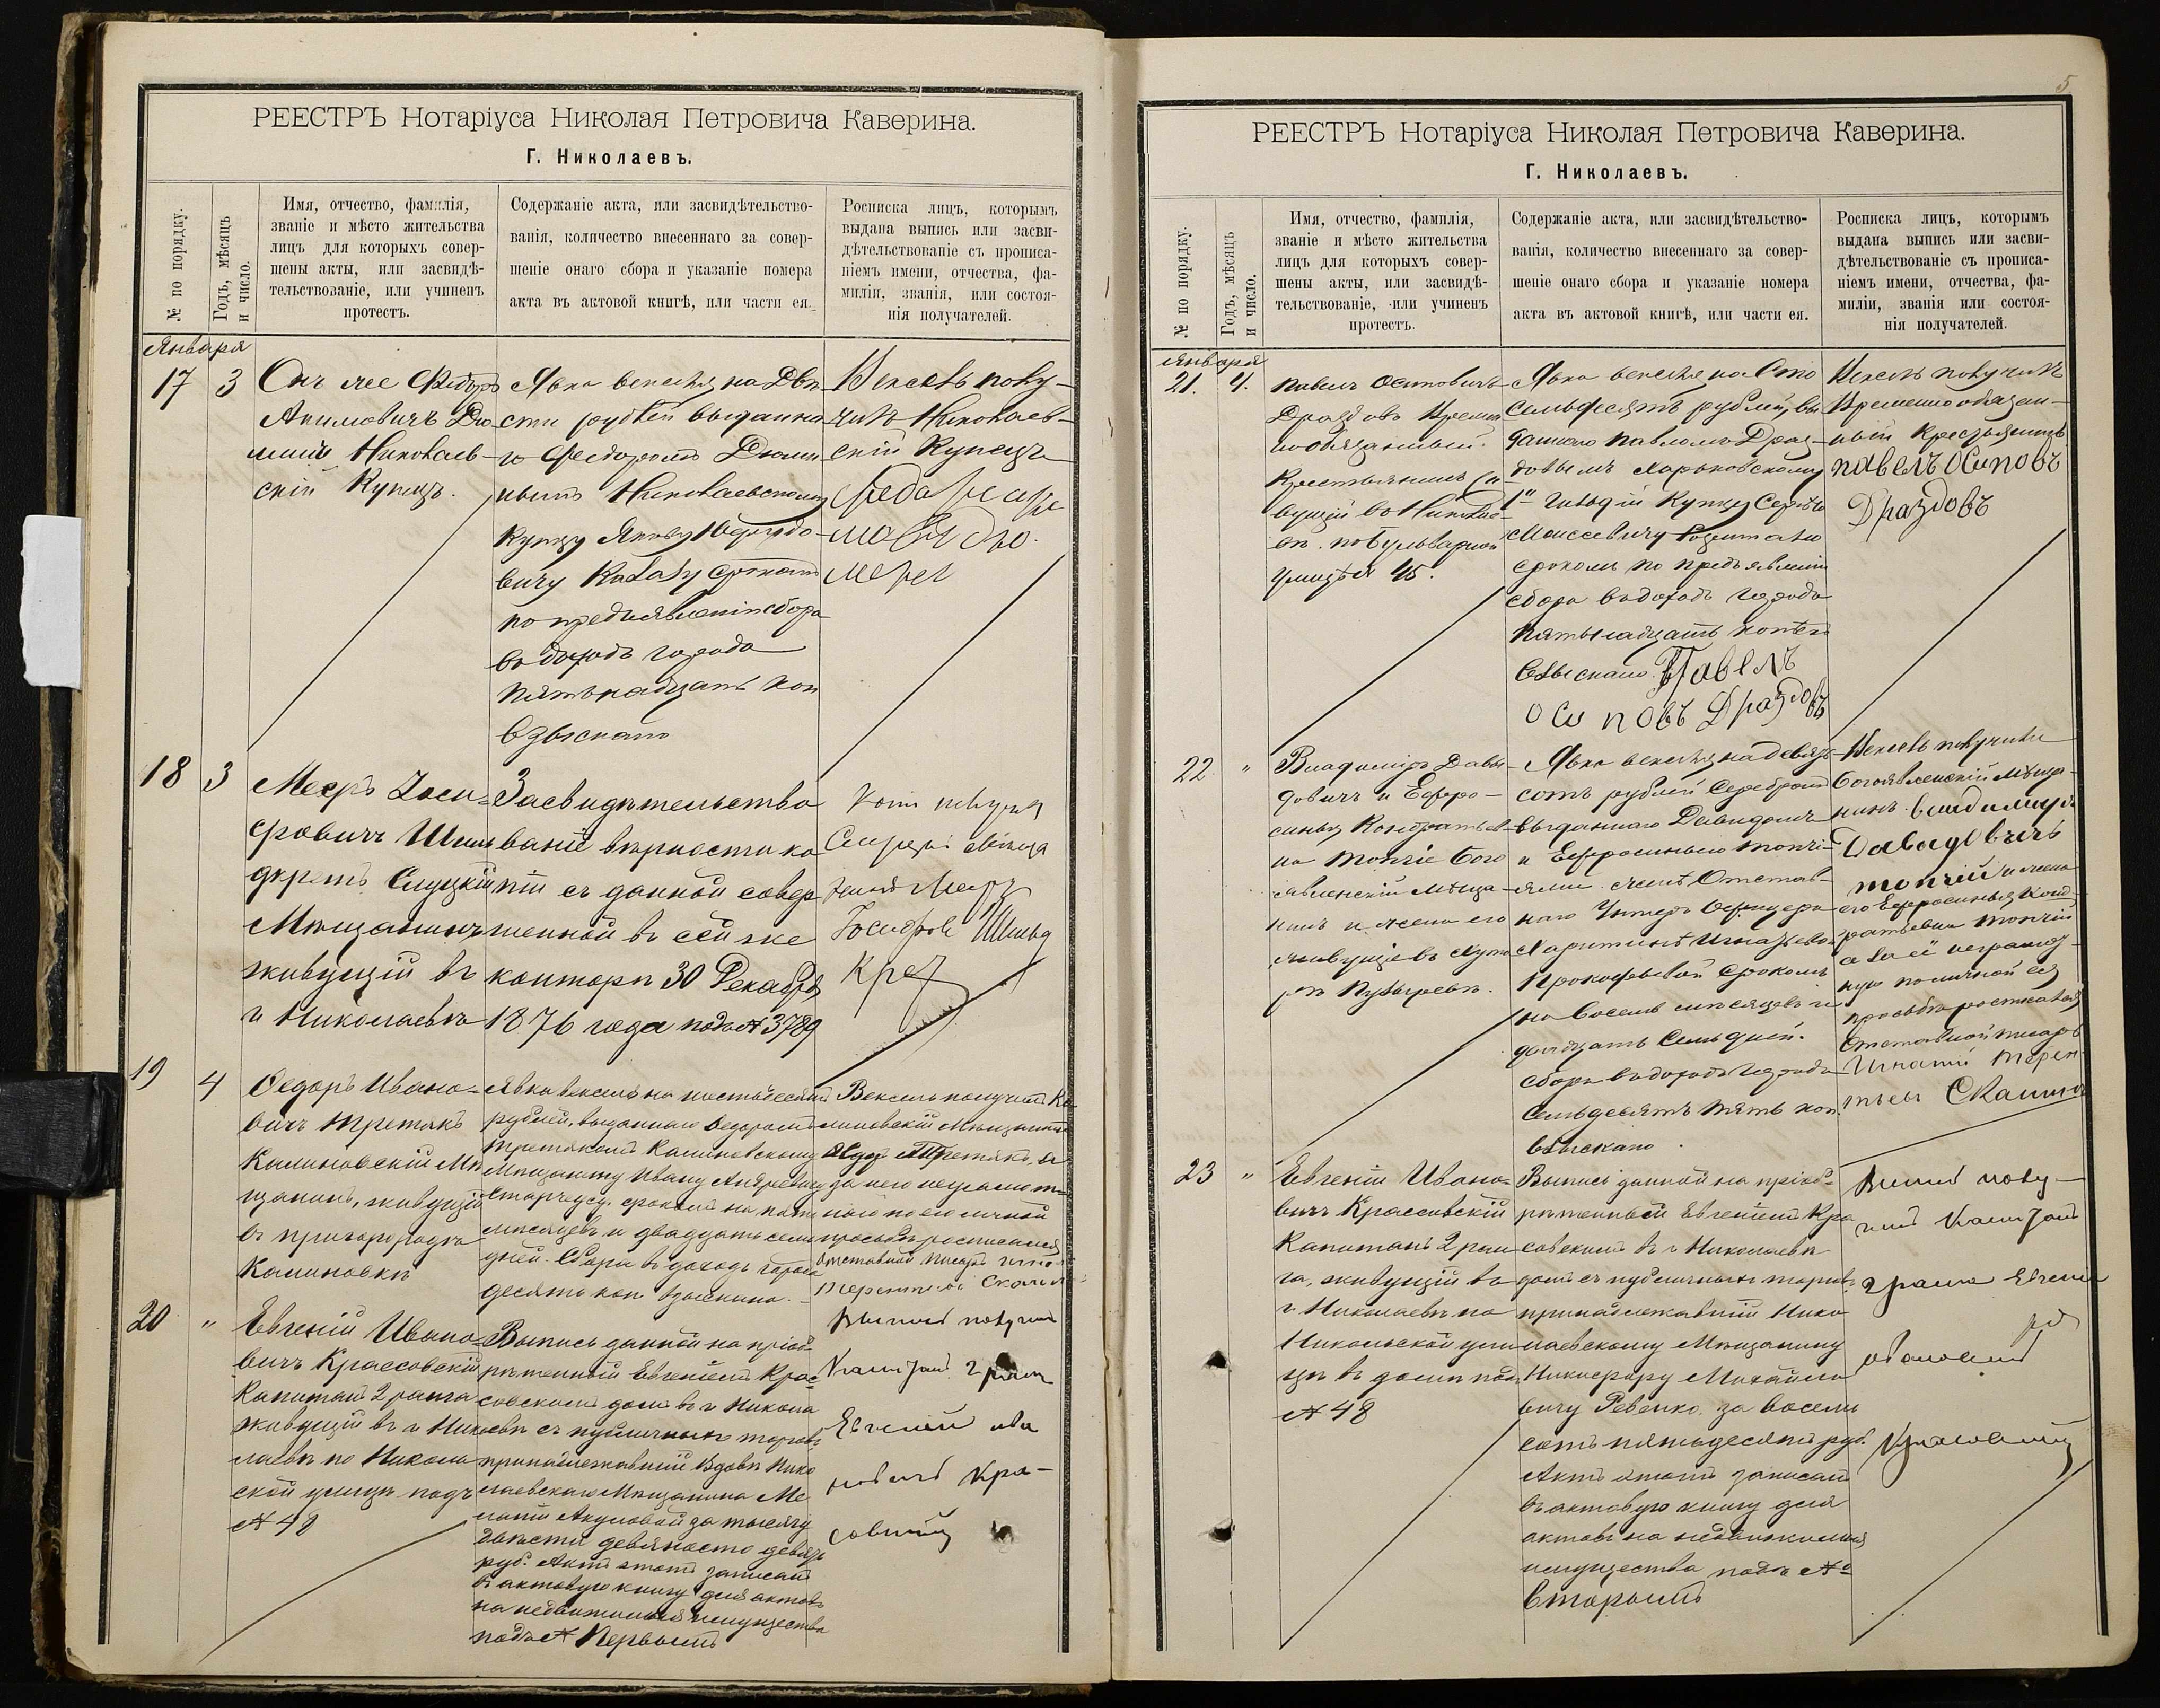 РЕЕСТРЪ Нотаріуса Николая Петровича Каверина.
Г. Николаевъ.
№ по порядку.
Годъ, мѣсяцъ и число.
Имя, отчество, фамилія,
званіе и мѣсто жительства
лицъ для которыхъ совер-
шены акты, или засвидѣ-
тельствованіе, или учиненъ
протестъ.
Содержаніе акта, или засвидѣтельство-
ванія, количество внесеннаго за совер-
шеніе онаго сбора и указаніе номера
акта въ актовой книгѣ, или части ея.
Росписка лицъ, которымъ
выдана выпись или засви-
дѣтельствованіе съ прописа-
ніемъ имени, отчества, фа-
миліи, званія, или состоя-
нія получателей.
Января
17 3
Онъ же Федоръ
Акимовичъ Дю
миней Николаев-
скій Купецъ.
Явка векселя на Двѣ
сти рублей выданна
го Федоромъ Дюми
нымъ Николаевскому
Купцу Якову
вичу срокомъ
по предъявленіи сбора
въ доходъ города
пятьнадцать коп
взыскано
Вексель полу-
чилъ Николаев-
скій Купецъ
18 3
Мееръ Іоси-
фовичъ Шнит
Слуцкій
Мѣщанинъ
живущій въ
г Николаевѣ
Засвидѣтельство
ваніе вѣрности ко
піи съ данной совер
шенной въ сей же
конторѣ 30 Декабря
1876 года подъ № 3789
Мееръ
19 4
Ѳедоръ Ивано-
вичъ Третякъ
Калиновскій Мѣ
щанинъ, живущій
въ пригородѣ
Калиновкѣ
Явка векселя на шестьдесятъ
рублей, выданнаго Ѳедоромъ
Третякомъ Калиновскому
Мѣщанину Ивану Андреевичу
срокомъ на пять
мѣсяцевъ и двадцать семь
дней. Сбора въ доходъ города
десять коп взыскано.
Вексель получилъ Ка
линовскій Мѣщанинъ
Ѳедоръ Третякъ, а
за него неграмот-
наго по его личной
просьбѣ росписался
Отставной писарь Игна
Терентьевъ
20 "
Евгеній Ивано-
вичъ Крассовскій
Капитанъ 2 ранга
живущій въ г Нико
лаевѣ по Николь
ской улицѣ подъ
№ 48
Выпись данной на пріоб
рѣтенный Евгеніемъ Крас
совскимъ домъ въ г Никола
евѣ съ публичныхъ торговъ
принадлежавшій Вдовѣ Нико
лаевскаго Мѣщанина Ме
ланіи Акуловой за тысячу
двѣсти девяносто девять
руб. Актъ этотъ записанъ
въ актовую книгу для актовъ
на недвижимыя имущества
подъ № Первымъ
Выпись получилъ
Капитанъ 2 ранга
Евгеній Ива
новичъ Кра-
совскій
5
РЕЕСТРЪ Нотаріуса Николая Петровича Каверина.
Г. Николаевъ.
№ по порядку.
Годъ, мѣсяцъ и число.
Имя, отчество, фамилія,
званіе и мѣсто жительства
лицъ для которыхъ совер-
шены акты, или засвидѣ-
тельствованіе, или учиненъ
протестъ.
Содержаніе акта, или засвидѣтельство-
ванія, количество внесеннаго за совер-
шеніе онаго сбора и указаніе номера
акта въ актовой книгѣ, или части ея.
Росписка лицъ, которымъ
выдана выпись или засви-
дѣтельствованіе съ прописа-
ніемъ имени, отчества, фа-
миліи, званія или состоя-
нія получателей.
января
21. 4.
Павелъ Осиповичъ
Драздовъ Времен
нообязанный
Крестьянинъ жи
вущій въ Николае
вѣ по Бульварной
улицѣ № 45.
Явка векселя на Сто
семьдесятъ рублей, вы
даннаго Павломъ Драз-
довымъ Харьковскому
1й гильдіи Купцу Сергѣю
Моисеевичу
срокомъ по предъявленіи
сбора въ доходъ города
пятьнадцать копѣекъ
взыскано. Павелъ
Осиповъ Драздовъ
Вексель получилъ
Временно обязан-
ный Крестьянинъ
Павелъ Осиповъ
Драздовъ
22 "
Владиміръ Давы-
довичъ и Ефро-
синья Кондратьев
на Топчіе Бого
явленскій Мѣща-
нинъ и жена его
живущіе въ Хуто
рѣ
Явка векселя на девять-
сотъ рублей Серебромъ
выданнаго Давидомъ
и Ефросиньею Топчі-
ями женѣ Отстав-
наго Унтеръ Офицера
Харитинѣ Игнатьевой
Прокофьевой срокомъ
на Восемь мѣсяцевъ и
двадцать семь дней.
сбора въ доходъ города
семьдесятъ пять коп
взыскано.
Вексель получили
Богоявленскій Мѣща-
нинъ Владимиръ
Давадовичъ
Топчій и жена
его Ефросинья Конд-
ратьевна Топчій
а за неё неграмот-
ную по личной ея
просьбѣ росписался
Отставной писарь
Игнатій Терен-
тьевъ
23 "
Евгеній Ивано-
вичъ Крассовскій
Капитанъ 2 ран
га, живущій въ
г Николаевѣ по
Никольской ули
цѣ въ домѣ подъ
№ 48
Выпись данной на пріоб-
рѣтенный Евгеніемъ Кра
совскимъ въ г Николаевѣ
домъ съ публичныхъ торговъ
принадлежавшій Нико
лаевскому Мѣщанину
Никифору Михайло
вичу Ревенко за восемь
сотъ пятьдесятъ руб.
Актъ этотъ записанъ
въ актовую книгу для
актовъ на недвижимыя
имущества подъ №
вторымъ
Выпись полу-
чилъ Капитанъ
2 ранга Евгеній
Ивановичъ
Красовскій